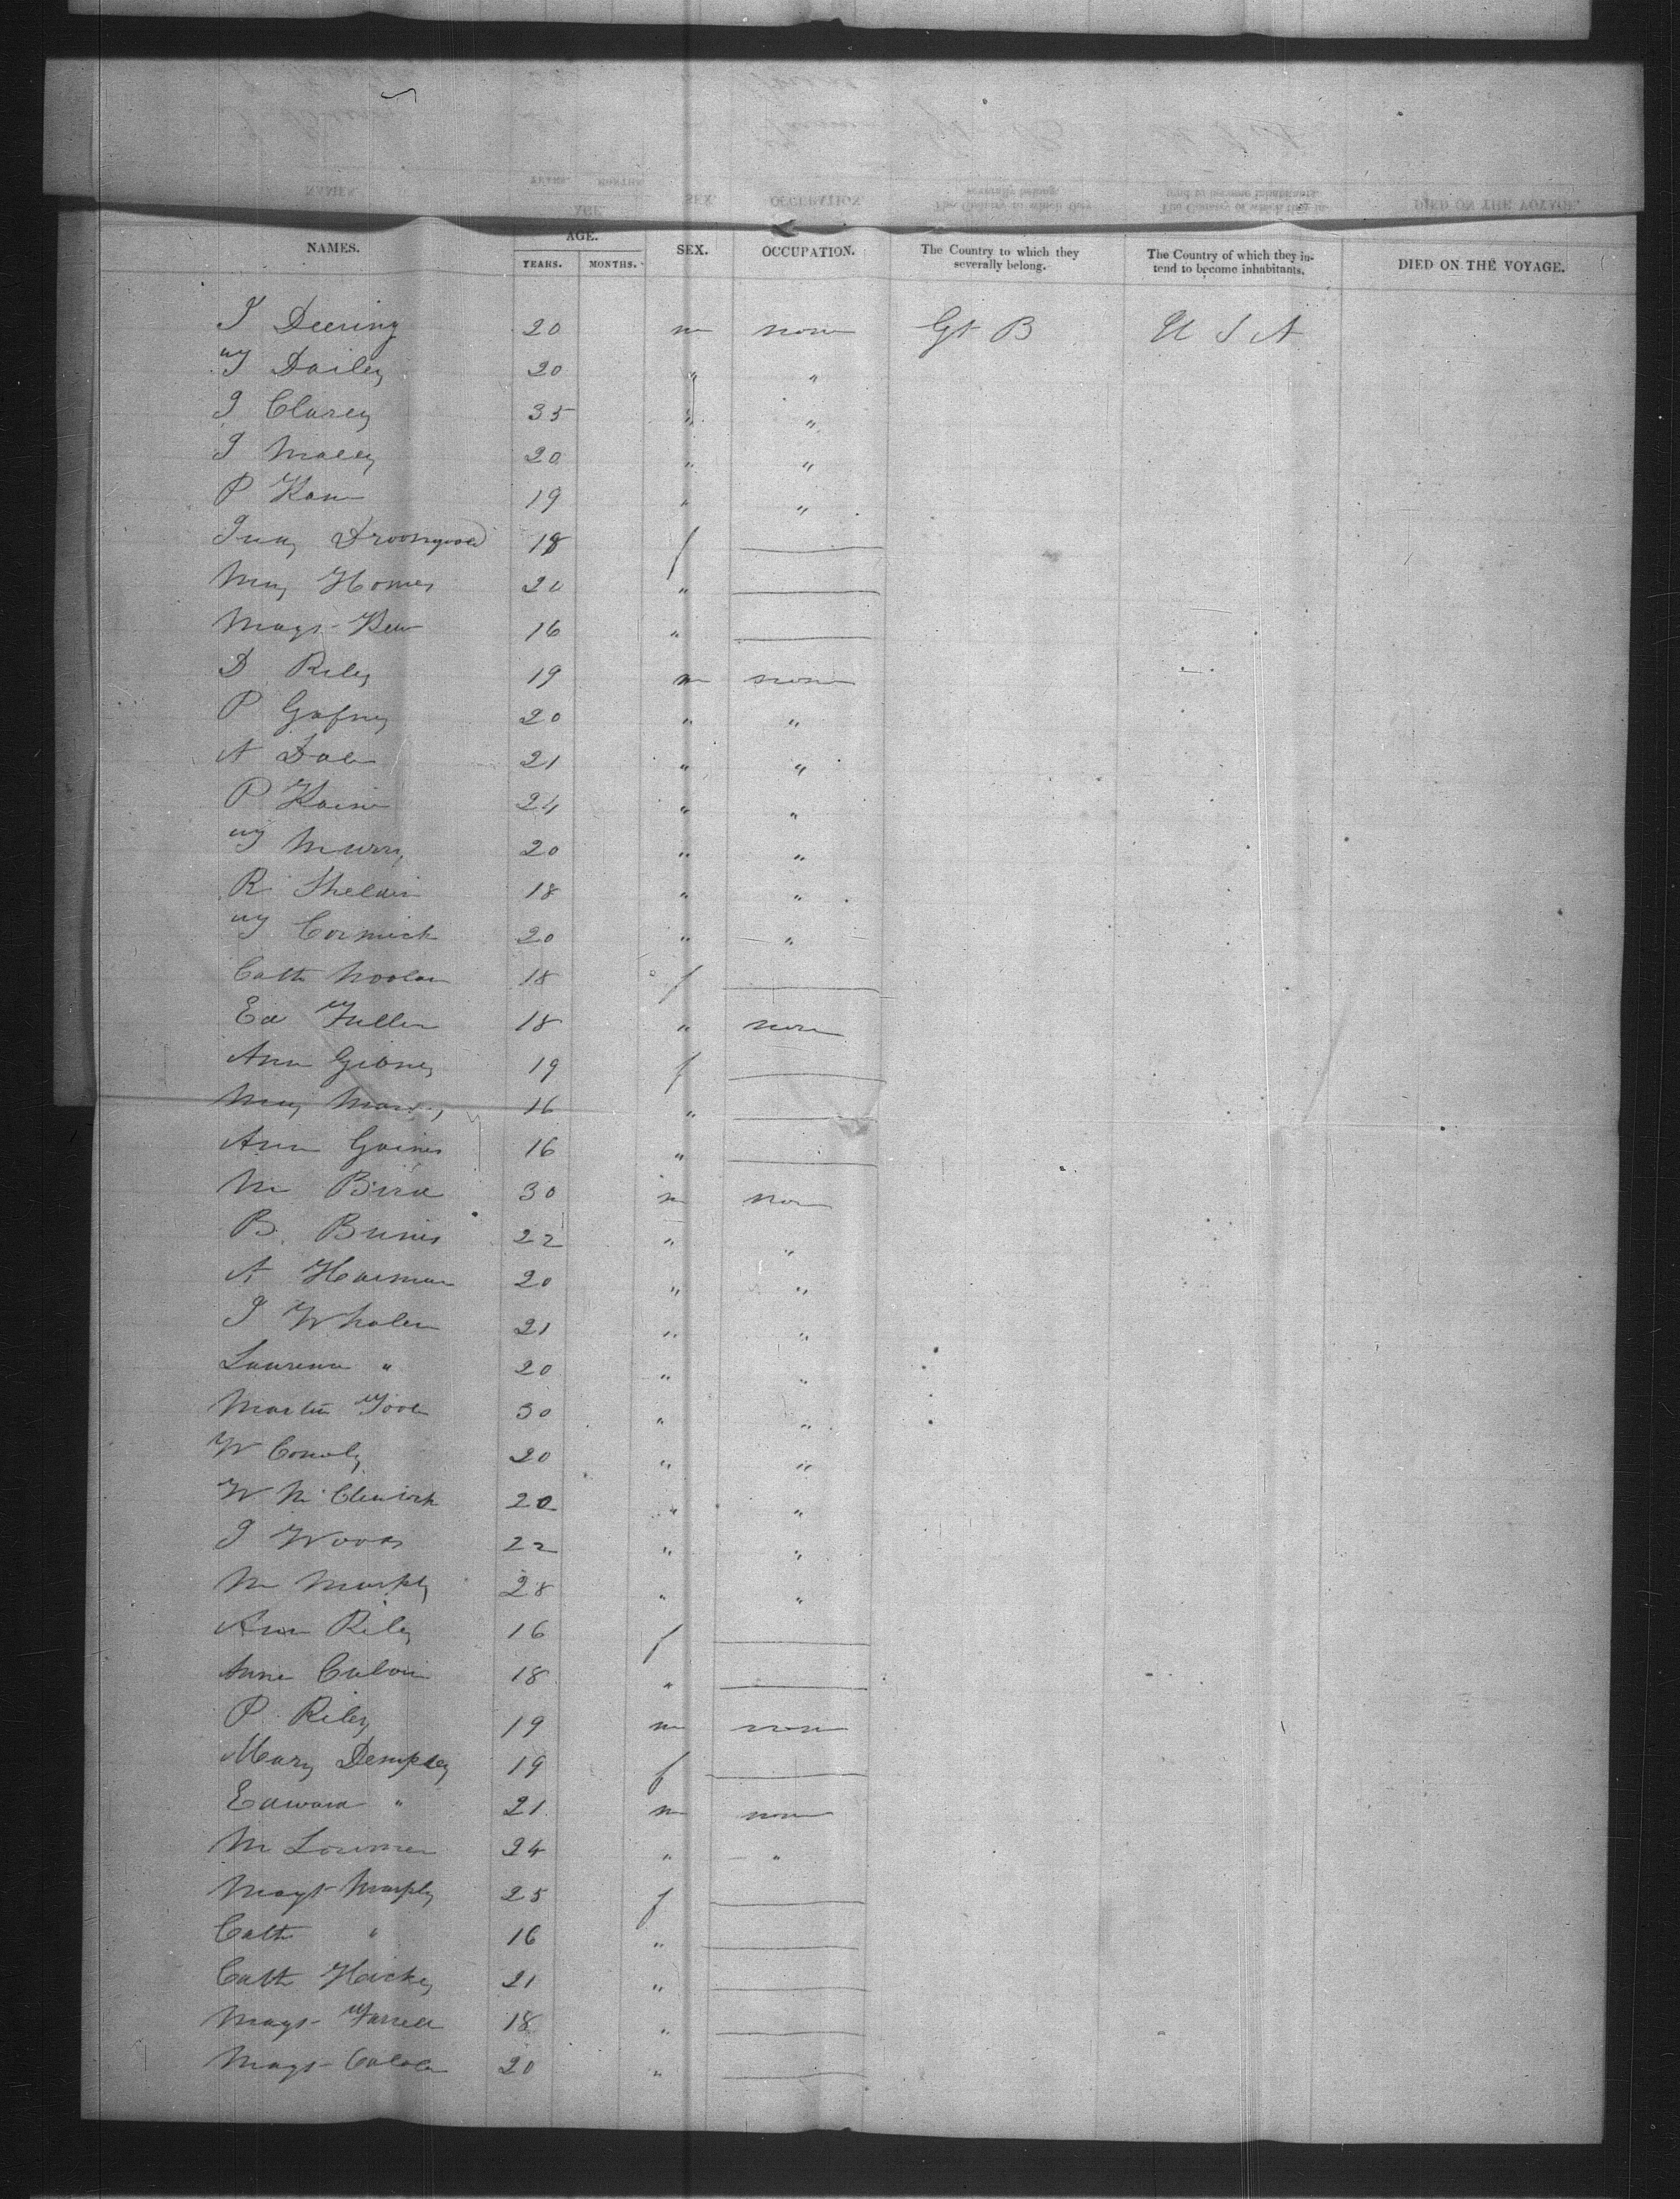 NAMES. AGE. SEX. OCCUPATION. The Country to which they severally belong. The Country of which they intend to become inhabitants. DIED ON THE VOYAGE.
YEARS. MONTHS.
J Deering 20 m none Gt B U S A
Ty Dailey 20 " "
J Clarey 35 " "
J 20 " "
P Kane 19 " "
18 f
Mary Homes 20 "
Magt 16 "
D Riley 19 m none
P Gafney 20 " "
A 21 " "
P Kaine 24 " "
Murry 20 " "
R 18 " "
Cormick 20 " "
Cath Noolan 18 f
Ed Fuller 18 " none
Ann Gibney 19 f
Mary 16 "
Ann Gaines 16 "
M Bird 30 m none
B 22 " "
A Harman 20 " "
J Whalen 21 " "
Laurence " 20 " "
Martin Toole 30 " "
W Conoly 20 " "
W 20 " "
J Woods 22 " "
M Murphy 28 " "
Ann Riley 16 f
Anne 18 "
P Riley 19 m none
Mary Dempsey 19 f
Edward " 21 m none
M 24 " "
Magt Murphy 25 f
Cath " 16 "
Cath Hickey 21 "
Magt Farrell 18 "
Magt 20 "